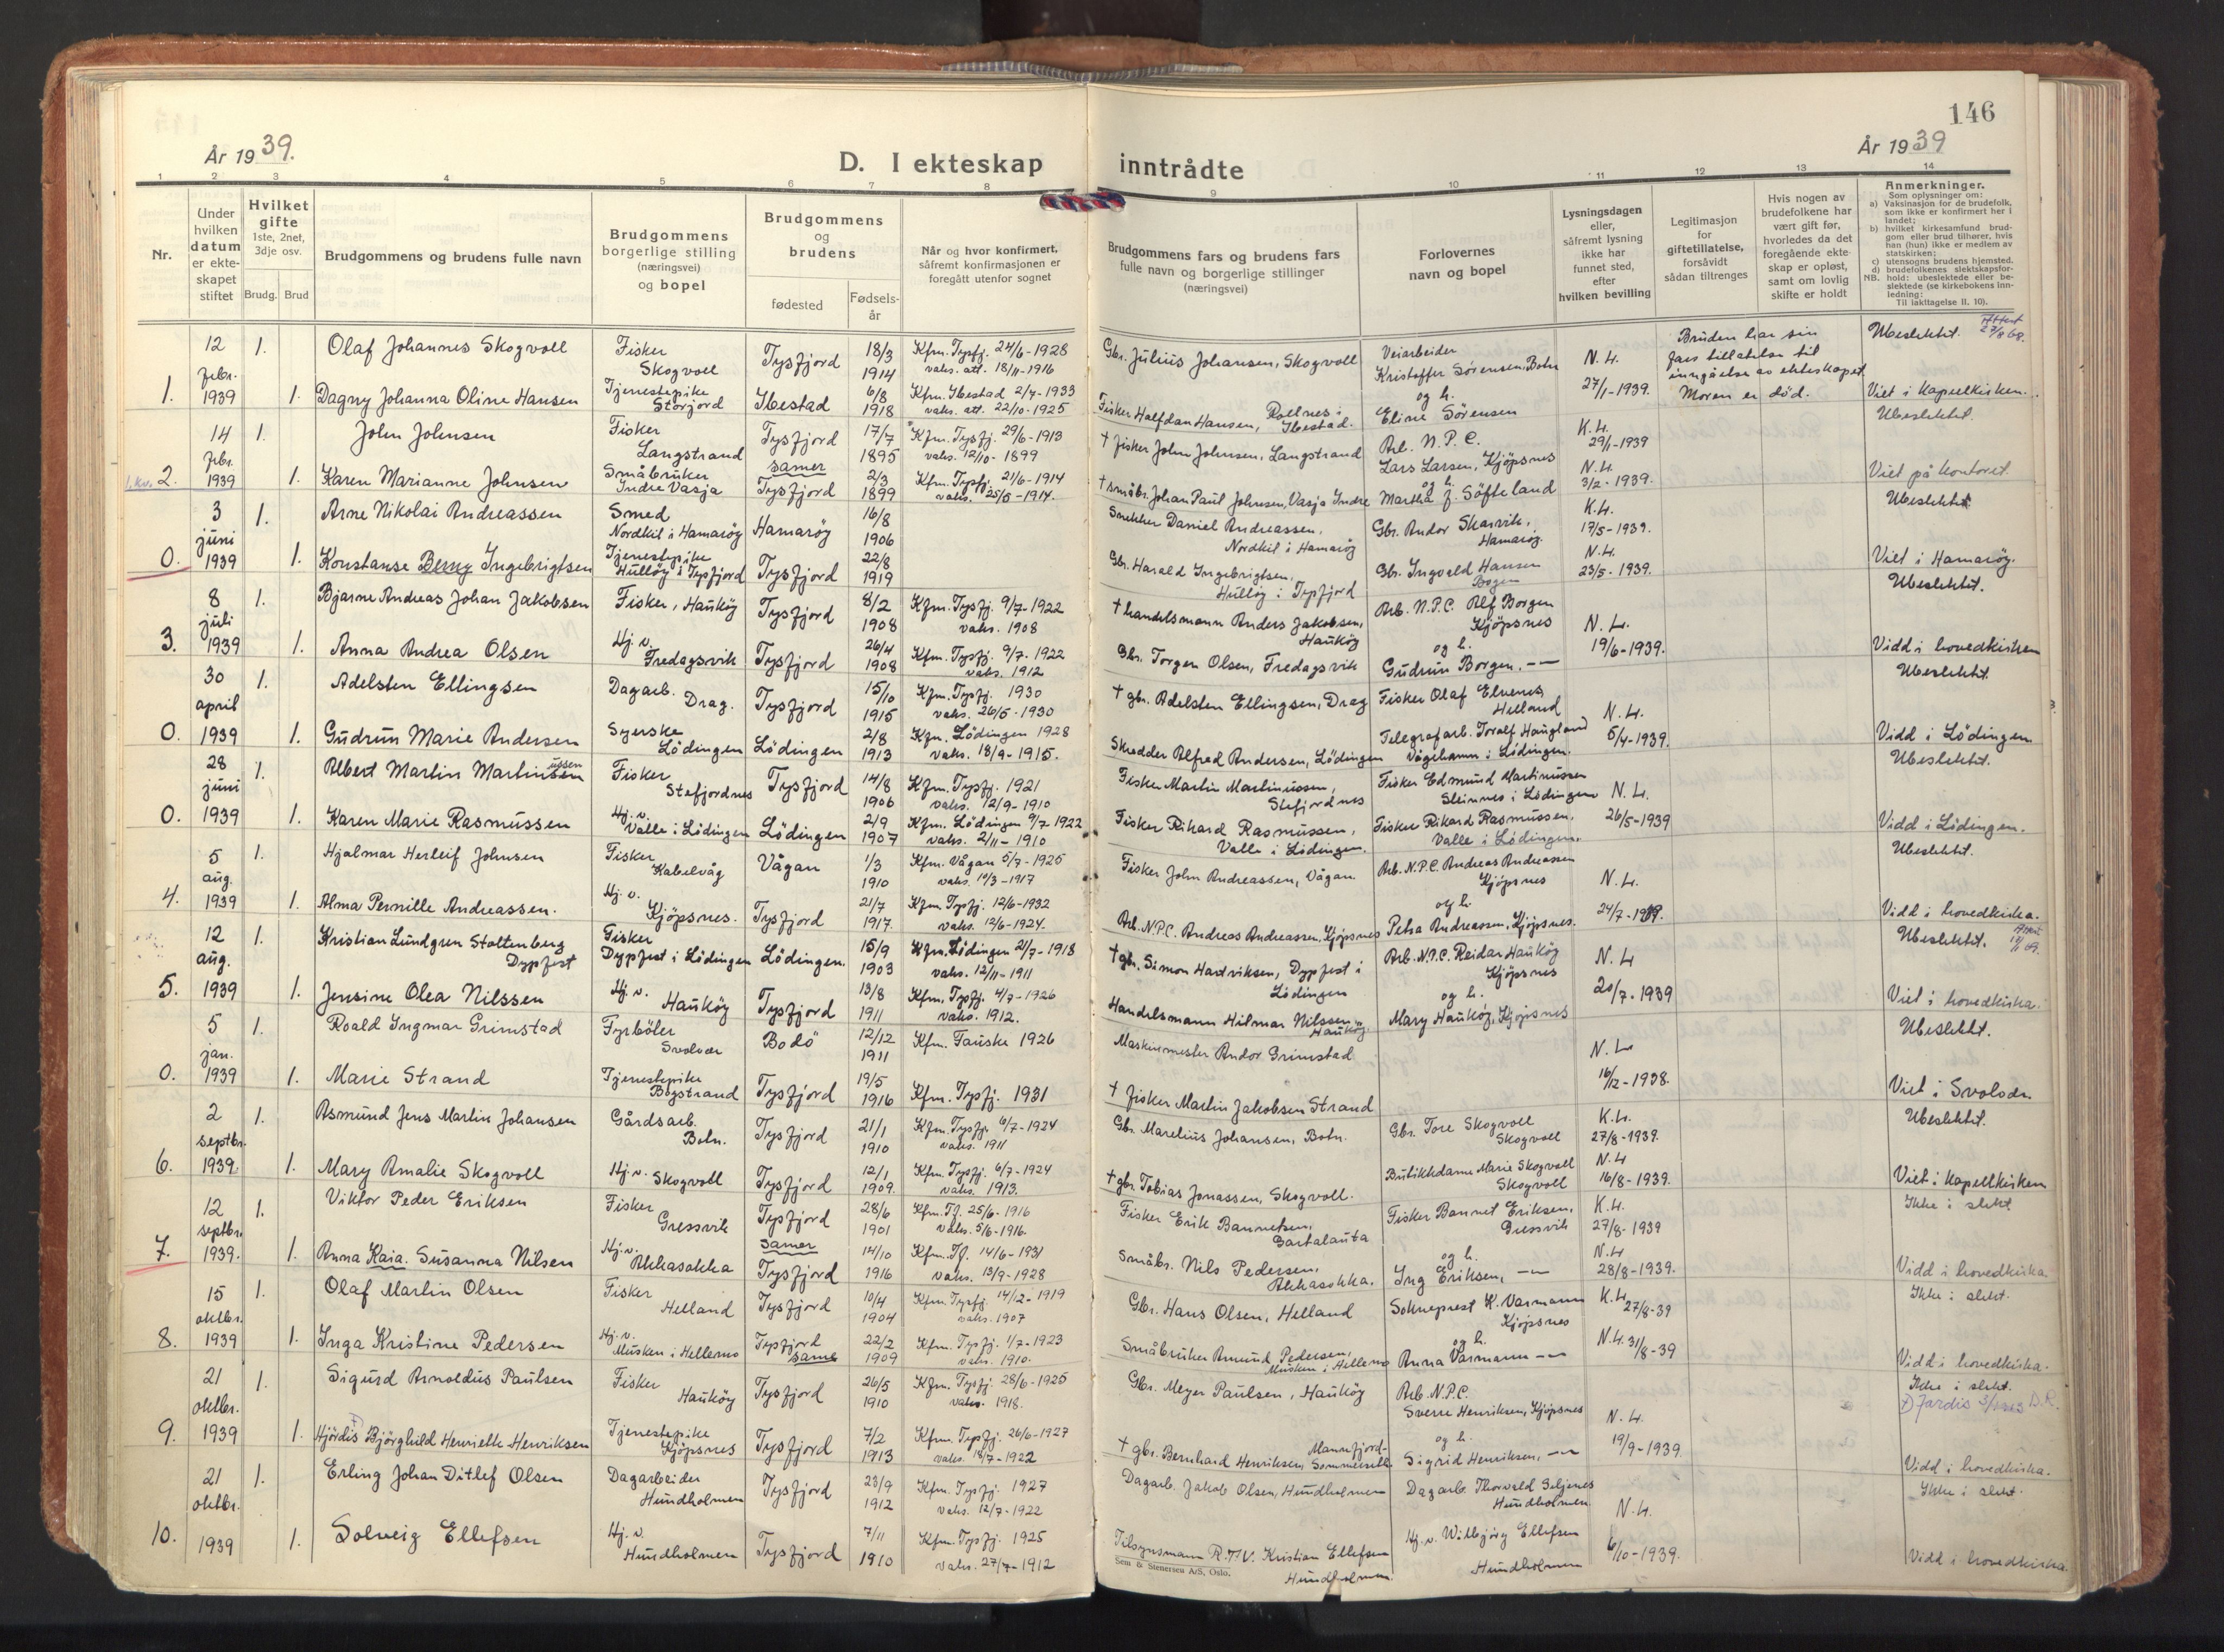 146
År 1939.
D. I ekteskap inntrådte
År 1939
1 2 3 4 5 6 7 8 9 10 11 12 13 14
Nr.
Under hvilken datum er ekteskapet stiftet
Hvilket gifte 1ste, 2net, 3dje osv.
Brudg. Brud
Brudgommens og brudens fulle navn
Brudgommens borgerlige stilling (næringsvei) og bopel
Brudgommens og brudens
fødested
Fødselsår
Når og hvor konfirmert, såfremt konfirmasjonen er foregått utenfor sognet
Brudgommens fars og brudens fars fulle navn og borgerlige stillinger (næringsvei)
Forlovernes navn og bopel
Lysningsdagen eller, såfremt lysning ikke har funnet sted, efter hvilken bevilling
Legitimasjon for giftetillatelse, forsåvidt sådan tiltrenges
Hvis nogen av brudefolkene har vært gift før, hvorledes da det foregående ekteskap er opløst, samt om lovlig skifte er holdt
Anmerkninger.
Som oplysninger om:
a) Vaksinasjon for de brudefolk, som ikke er konfirmert her i landet;
b) hvilket kirkesamfund brudgom eller brud tilhører, hvis han (hun) ikke er medlem av statskirken;
c) utensogns brudens hjemsted.
d) brudefolkenes slektskapsforhold: ubeslektede eller beslektede (se kirkebokens innledning:
NB. Til iakttagelse II. 10).
1. 12 febr. 1939
1. Olaf Johannes Skogvoll Fisker Skogvoll Tysfjord 18/3 1914 Kfm. Tysfj. 24/6-1928 vaks. att. 18/11-1916 Gbr. Julius Johansen, Skogvoll Veiarbeider Kristoffer Sørensen, Botn N. L. 27/1-1939. Bruden har sin fars tillatelse til inngåelse av ekteskapet Moren er død. Ubeslektet. Attest 27/8 68.
1. Dagny Johanna Oline Hansen Tjenestepike Storjord Ibestad 6/8 1918 Kfm. Ibestad 2/7-1933 vaks. att. 22/10-1925 Fisker Halfdan Hansen, Rollnes i Ibestad. og h. Eline Sørensen Viet i kapellkirken.
1. kv. 2. 14 febr. 1939
1. John Johnsen Fisker Langstrand Tysfjord 17/7 1895 Kfm. Tysfj. 29/6-1913 vaks. 12/10-1899 † fisker John Johnsen, Langstrand Arb. N.P.C. Lars Larsen, Kjøpsnes K. L. 29/1-1939 Ubeslektet.
samer
1. Karen Marianne Johnsen Småbruker Indre Vasja Tysfjord 2/3 1899 Kfm. Tysfj. 21/6-1914 vaks. 25/5-1914. † småbr. Johan Paul Johnsen, Vasja Indre og h. Martha J. Søfteland N. L. 3/2-1939. Viet på kontoret.
0. 3 juni 1939
1. Arne Nikolai Andreassen Smed Nordkil i Hamarøy Hamarøy 16/8 1906 Snekker Daniel Andreassen, Nordkil i Hamarøy Gbr. Andor Skarvik, Hamarøy. K.L. 17/5-1939. Ubeslektet
1. Konstanse Berny Ingebrigtsen Tjenestepike Hulløy i Tysfjord Tysfjord 22/8 1919 Gbr. Harald Ingebrigtsen, Hulløy i Tysfjord Gbr. Ingvald Hansen Bogen N. L. 23/5-1939. Viet i Hamarøy.
3. 8 juli 1939
1. Bjarne Andreas Johan Jakobsen Fisker, Haukøy Tysfjord 8/2 1908 Kfm. Tysfj. 9/7-1922 vaks. 1908 † handelsmann Anders Jakobsen, Haukøy Arb. N.P.C. Alf Borgen Kjøpsnes N. L. 19/6-1939. Ubeslektet.
1. Anna Andrea Olsen Hj. v. Fredagsvik Tysfjord 26/4 1908 Kfm. Tysfj. 9/7-1922 vaks. 1912 Gbr. Torgen Olsen, Fredagsvik og h. Gudrun Borgen, — Vidd i hovedkirken
0. 30 april 1939
1. Adelsten Ellingsen Dagarb. Drag. Tysfjord 15/10 1915 Kfm. Tysfj. 1930 vaks. 26/5-1930 † gbr. Adelsten Ellingsen, Drag Fisker Olaf Elvenes Helland N. L. 5/4-1939. Ubeslektet.
1. Gudrun Marie Andersen Syerske Lødingen Lødingen 2/8 1913 Kfm. Lødingen 1928 vaks. 18/9-1915. Skredder Alfred Andersen, Lødingen Telegrafarb. Toralf Haugland Vågehamn i Lødingen. Vidd i Lødingen
0. 28 juni 1939
1. Albert Martin Martinsen ussen Fisker Stefjordnes Tysfjord 14/8 1906 Kfm. Tysfj. 1921 vaks. 12/9-1910 Fisker Martin Martinussen, Stefjordnes Fisker Edmund Martinussen Steinnes i Lødingen N. L. 26/5-1939 Ubeslektet.
1. Karen Marie Rasmussen Hj. v. Valle i Lødingen Lødingen 2/9 1907 Kfm. Lødingen 9/7 1922 vaks. 2/11-1910 Fisker Rikard Rasmussen, Valle i Lødingen. Fisker Rikard Rasmussen, Valle i Lødingen. Vidd i Lødingen.
4. 5 aug. 1939
1. Hjalmar Herleif Johnsen Fisker Kabelvåg Vågan 1/3 1910 Kfm. Vågan 5/7-1925 vaks. 10/3-1917 Fisker John Andreassen, Vågan. Arb. N.P.C. Andreas Andreassen Kjøpsnes N. L. 24/7-1939. Ubeslektet.
1. Alma Pernille Andreassen. Hj. v. Kjøpsnes. Tysfjord 21/7 1917. Kfm. Tysfj. 12/6-1932 vaks. 12/6-1924. Arb. N.P.C. Andreas Andreassen, Kjøpsnes og h. Petra Andreassen, Kjøpsnes. Vidd i hovedkirka.
5. 12 aug. 1939
1. Kristian Lundgren Stoltenberg Dypfest Fisker Dypfest i Lødingen Lødingen. 15/9 1903 Kfm. Lødingen 21/7-1918 vaks. 12/11-1911 † gbr. Simon Hartviksen, Dypfest i Lødingen Arb. N.P.C. Reidar Haukøy Kjøpsnes N. L 20/7-1939 Ubeslektet.
1. Jensine Olea Nilssen Hj. v. Haukøy Tysfjord 13/8 1911 Kfm. Tysfj. 4/7-1926 vaks. 1912. Handelsmann Hilmar Nilssen, Haukøy. og h. Mary Haukøy, Kjøpsnes Viet i hovedkirka.
0. 5 jan. 1939
1. Roald Ingmar Grimstad Fyrbøter Svolvær Bodø 12/12 1911 Kfm. Fauske 1926 Maskinmester Andor Grimstad N. L 16/12-1938. Ubeslektet.
1. Marie Strand Tjenestepike Bogstrand Tysfjord 19/5 1916 Kfm. Tysfj. 1931 † fisker Martin Jakobsen Strand Viet i Svolvær
6. 2 septbr. 1939.
1. Asmund Jens Martin Johansen Gårdsarb. Botn. Tysfjord 21/1 1910 Kfm. Tysfj. 6/7-1924 vaks. 1911 Gbr. Marelius Johansen, Botn. Gbr. Tore Skogvoll Skogvoll K.L. 27/8-1939. Ubeslektet.
1. Mary Amalie Skogvoll Hj. v. Skogvoll Tysfjord 12/1 1909. Kfm. Tysfj. 6/7-1924 vaks. 1913. † gbr. Tobias Jonassen, Skogvoll. Butikkdame Marie Skogvoll Skogvoll N. L 16/8-1939. Viet i kapellkirken
7. 12 septbr. 1939.
1. Viktor Peder Eriksen Fisker Gressvik Tysfjord 28/6 1901 Kfm. Tf. 25/6-1916 vaks. 5/6-1916. Fisker Erik Bannetsen, Gartalauta Fisker Bannet Eriksen, Gressvik K.L. 27/8-1939 Ikke i slekt
samer
1. Anna Kaia. Susanna Nilsen Hj. v. Akkasokka Tysfjord 14/10 1916 Kfm. Tf. 14/6-1931 vaks. 13/9-1928 Småbr. Nils Pedersen, Akkasokka. og h. Ing Eriksen, — N. L 28/8-1939. Vidd i hovedkirka.
8. 15 oktbr. 1939
1. Olaf Martin Olsen Fisker Helland Tysfjord 10/4 1904 Kfm. Tysfj. 14/12-1919 vaks. 1907 Gbr. Hans Olsen, Helland Sokneprest K. Varmann Kjøpsnes K.L. 27/8-39 Ikke i slekt.
1. Inga Kristine Pedersen Hj. v. Musken i Hellemo Tysfjord same 22/2 1909 Kfm. Tysfj. 1/7-1923 vaks. 1910. Småbruker Amund Pedersen, Musken i Hellemo og h. Anna Varmann — N. L. 31/8-39 Vidd i hovedkirka.
9. 21 oktbr. 1939
1. Sigurd Arnoldus Paulsen Fisker Haukøy Tysfjord 26/5 1910 Kfm. Tysfj. 28/6-1925 vaks. 1918. Gbr. Meyer Paulsen, Haukøy Arb. N.P.C. Sverre Henriksen, Kjøpsnes N. L. 19/9-1939. Ikke i slekt.
1. Hjørdis Bjørghild Henriette Henriksen Tjenestepike Kjøpsnes Tysfjord 7/2 1913 Kfm. Tysfj. 26/6-1927 vaks. 13/7-1922 † gbr. Bernhard Henriksen, Mannfjord- og h. Sigrid Henriksen, — Vidd i hovedkirka.
10. 21 oktbr. 1939
1. Erling Johan Ditlef Olsen Dagarbeider Hundholmen Tysfjord 23/9 1912 Kfm. Tysfj. 1927 vaks. 12/7-1922 Dagarb. Jakob Olsen, Hundholmen Dagarb. Thorvald Siljenes Hundholmen N. L. 6/10-1939. Ikke i slekt.
1. Solveig Ellefsen Hj. v. Hundholmen Tysfjord 7/11 1910 Kfm. Tysfj. 1925 vaks. 27/7-1912 Tilsynsmann R.T.V. Kristian Ellefsen Hundholmen Hj. v. Wilbjørg Ellefsen Hundholmen Vidd i hovedkirka
Sem & Stenersen A/S, Oslo.